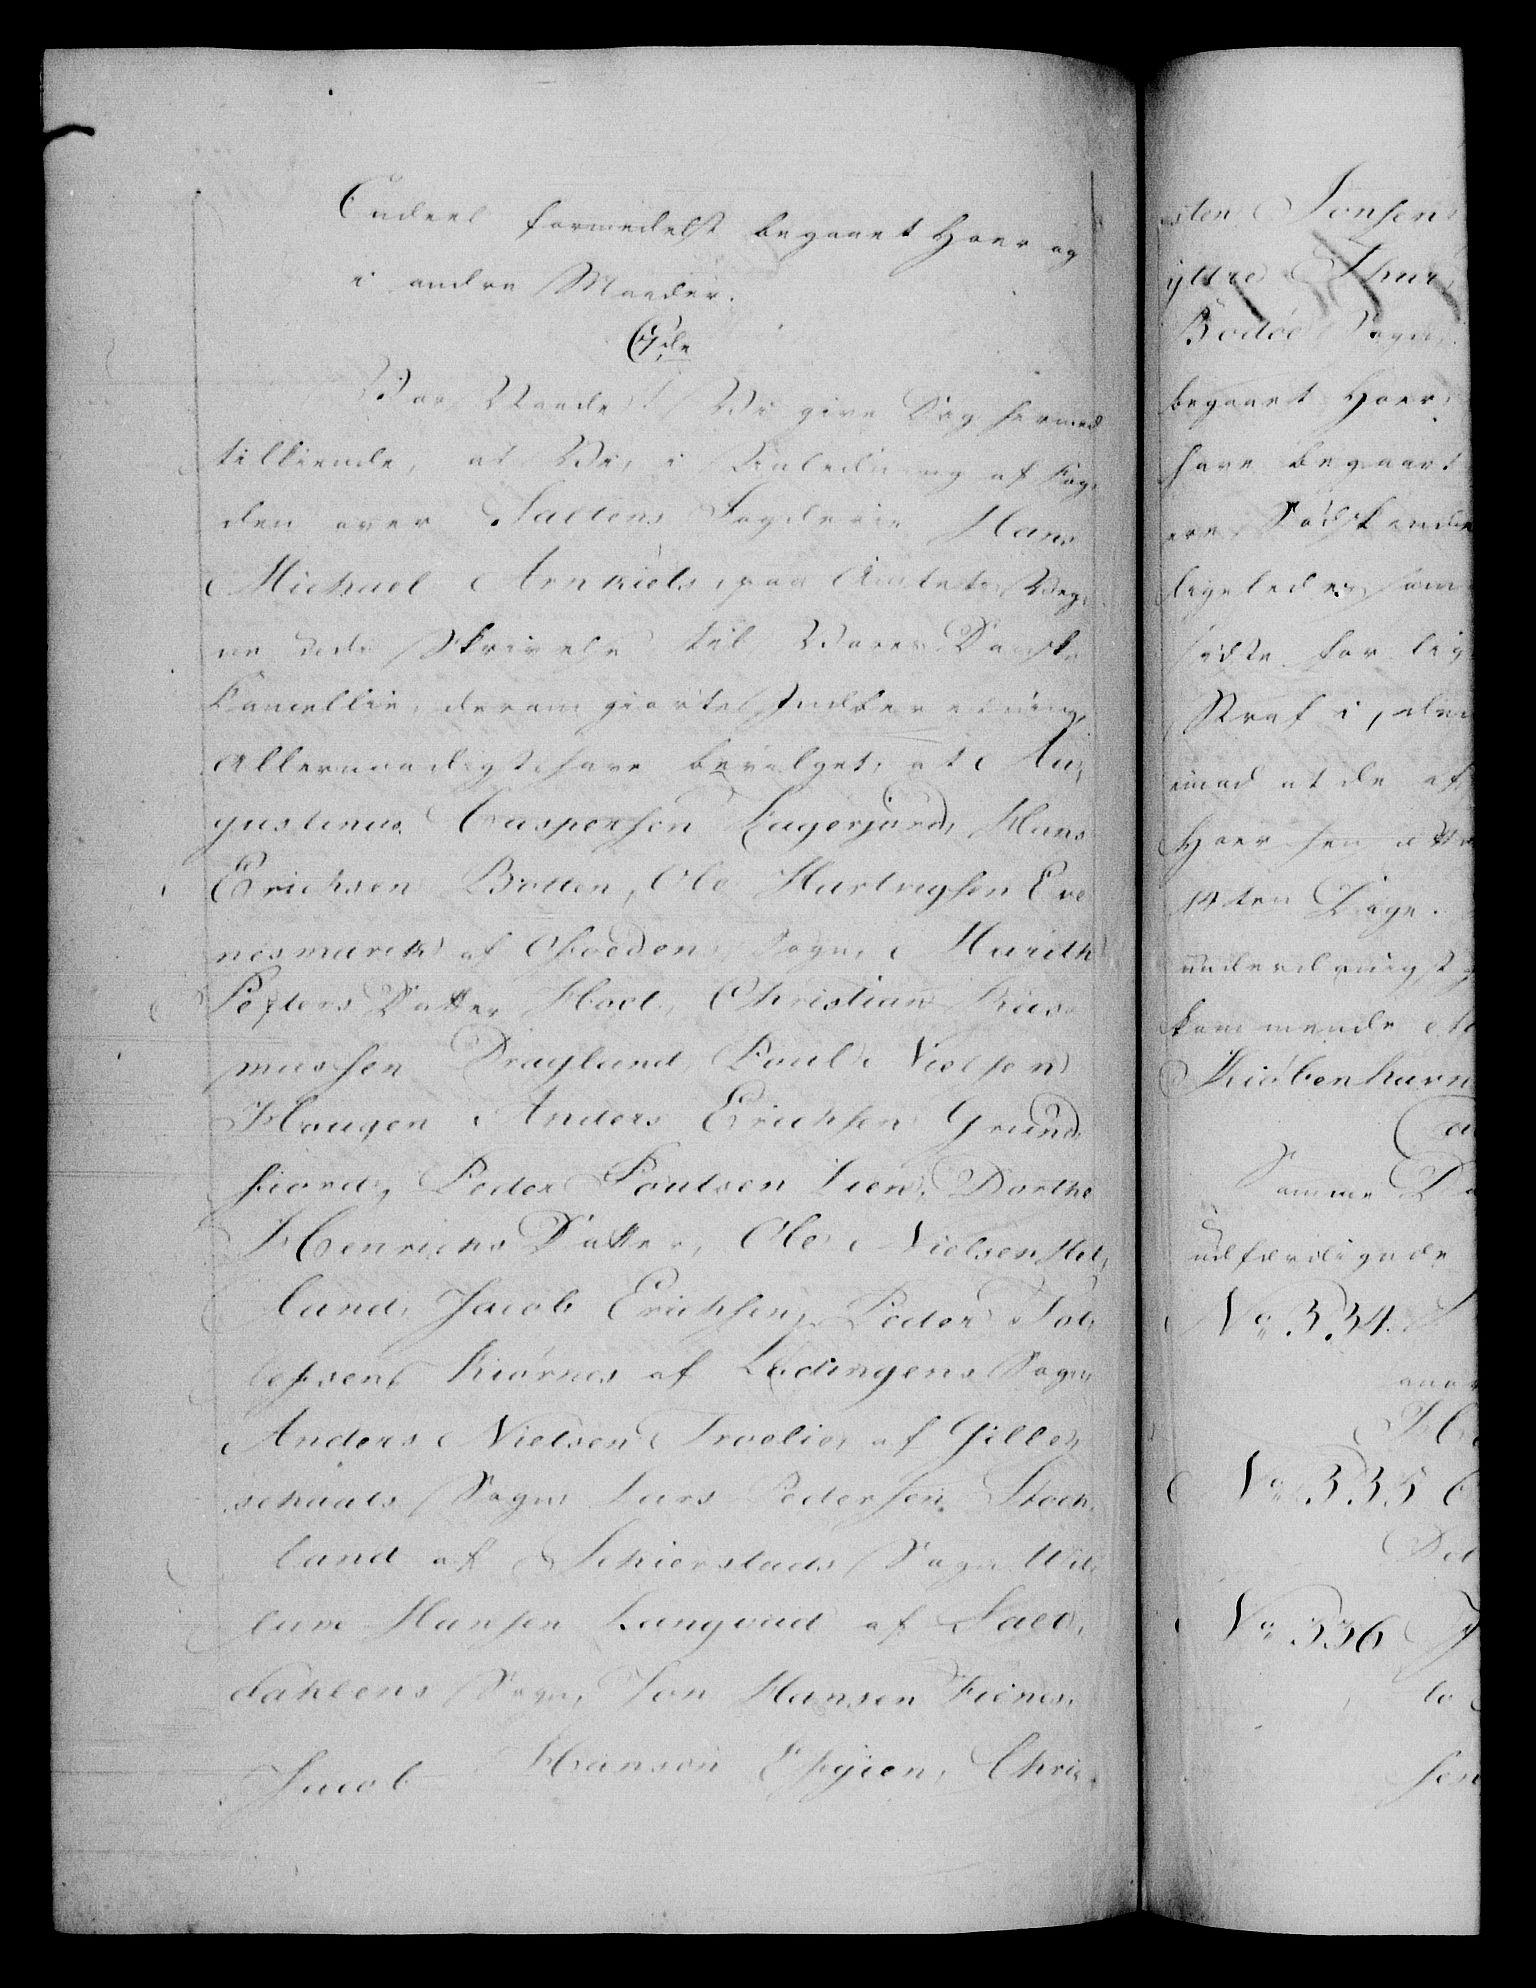 Endeel formedelst begaaet Hoer og
i andre Maader.
Vor Naade! Vi give Dig hermed
tilkiende, at Vi, i Anledning af Fog,
den over Saltens Fogderie Hans
Michael Arnkiels, paa Amtets Veg,
ne Skrivelse til Vores Danske
Cancellie, derom giorte Indberetning,
Allernaadigst have bevilget, at Au,
gustinus Caspersen Lagerjord, Hans
Erichsen Botten, Ole Hartvigsen Eve
nesmarck af Ofoedens Sogn, Marith
Peders Datter Hoel, Christian Ras,
mussen Dragland Poul Nielsen
Hougen Anders Erichsen Grund,
fiord, Peder Poulsen Lien, Dorthe
Henrichs Datter, Ole Nielsen Het,
land, Jacob Erichsen, Peder Tol,
lefsen Kiörnes af Lödingens Sogn
Anders Nielsen Troelie, af Gille,
schaals Sogn Lars Pedersen Stoch,
land af Schierstads Sogn Wil,
lum Hansen Langvad af Salt,
dahlens Sogn, Jon Hansen Fienes,
Jacob Hanson Efjien, Chri,
sten Jonsen
yttre Thur,
Bodöe Sogn,
begaaet Hoer,
have begaaet
ere Södskende
ligeledes som
sidste for lig
Straf i, den
imod at de af
Hoer
14ten Dage.
underdanigst
kommende
Kiöbenhavn
Samme Da
udfærdigede
No 334.
No 335
No 336
sen